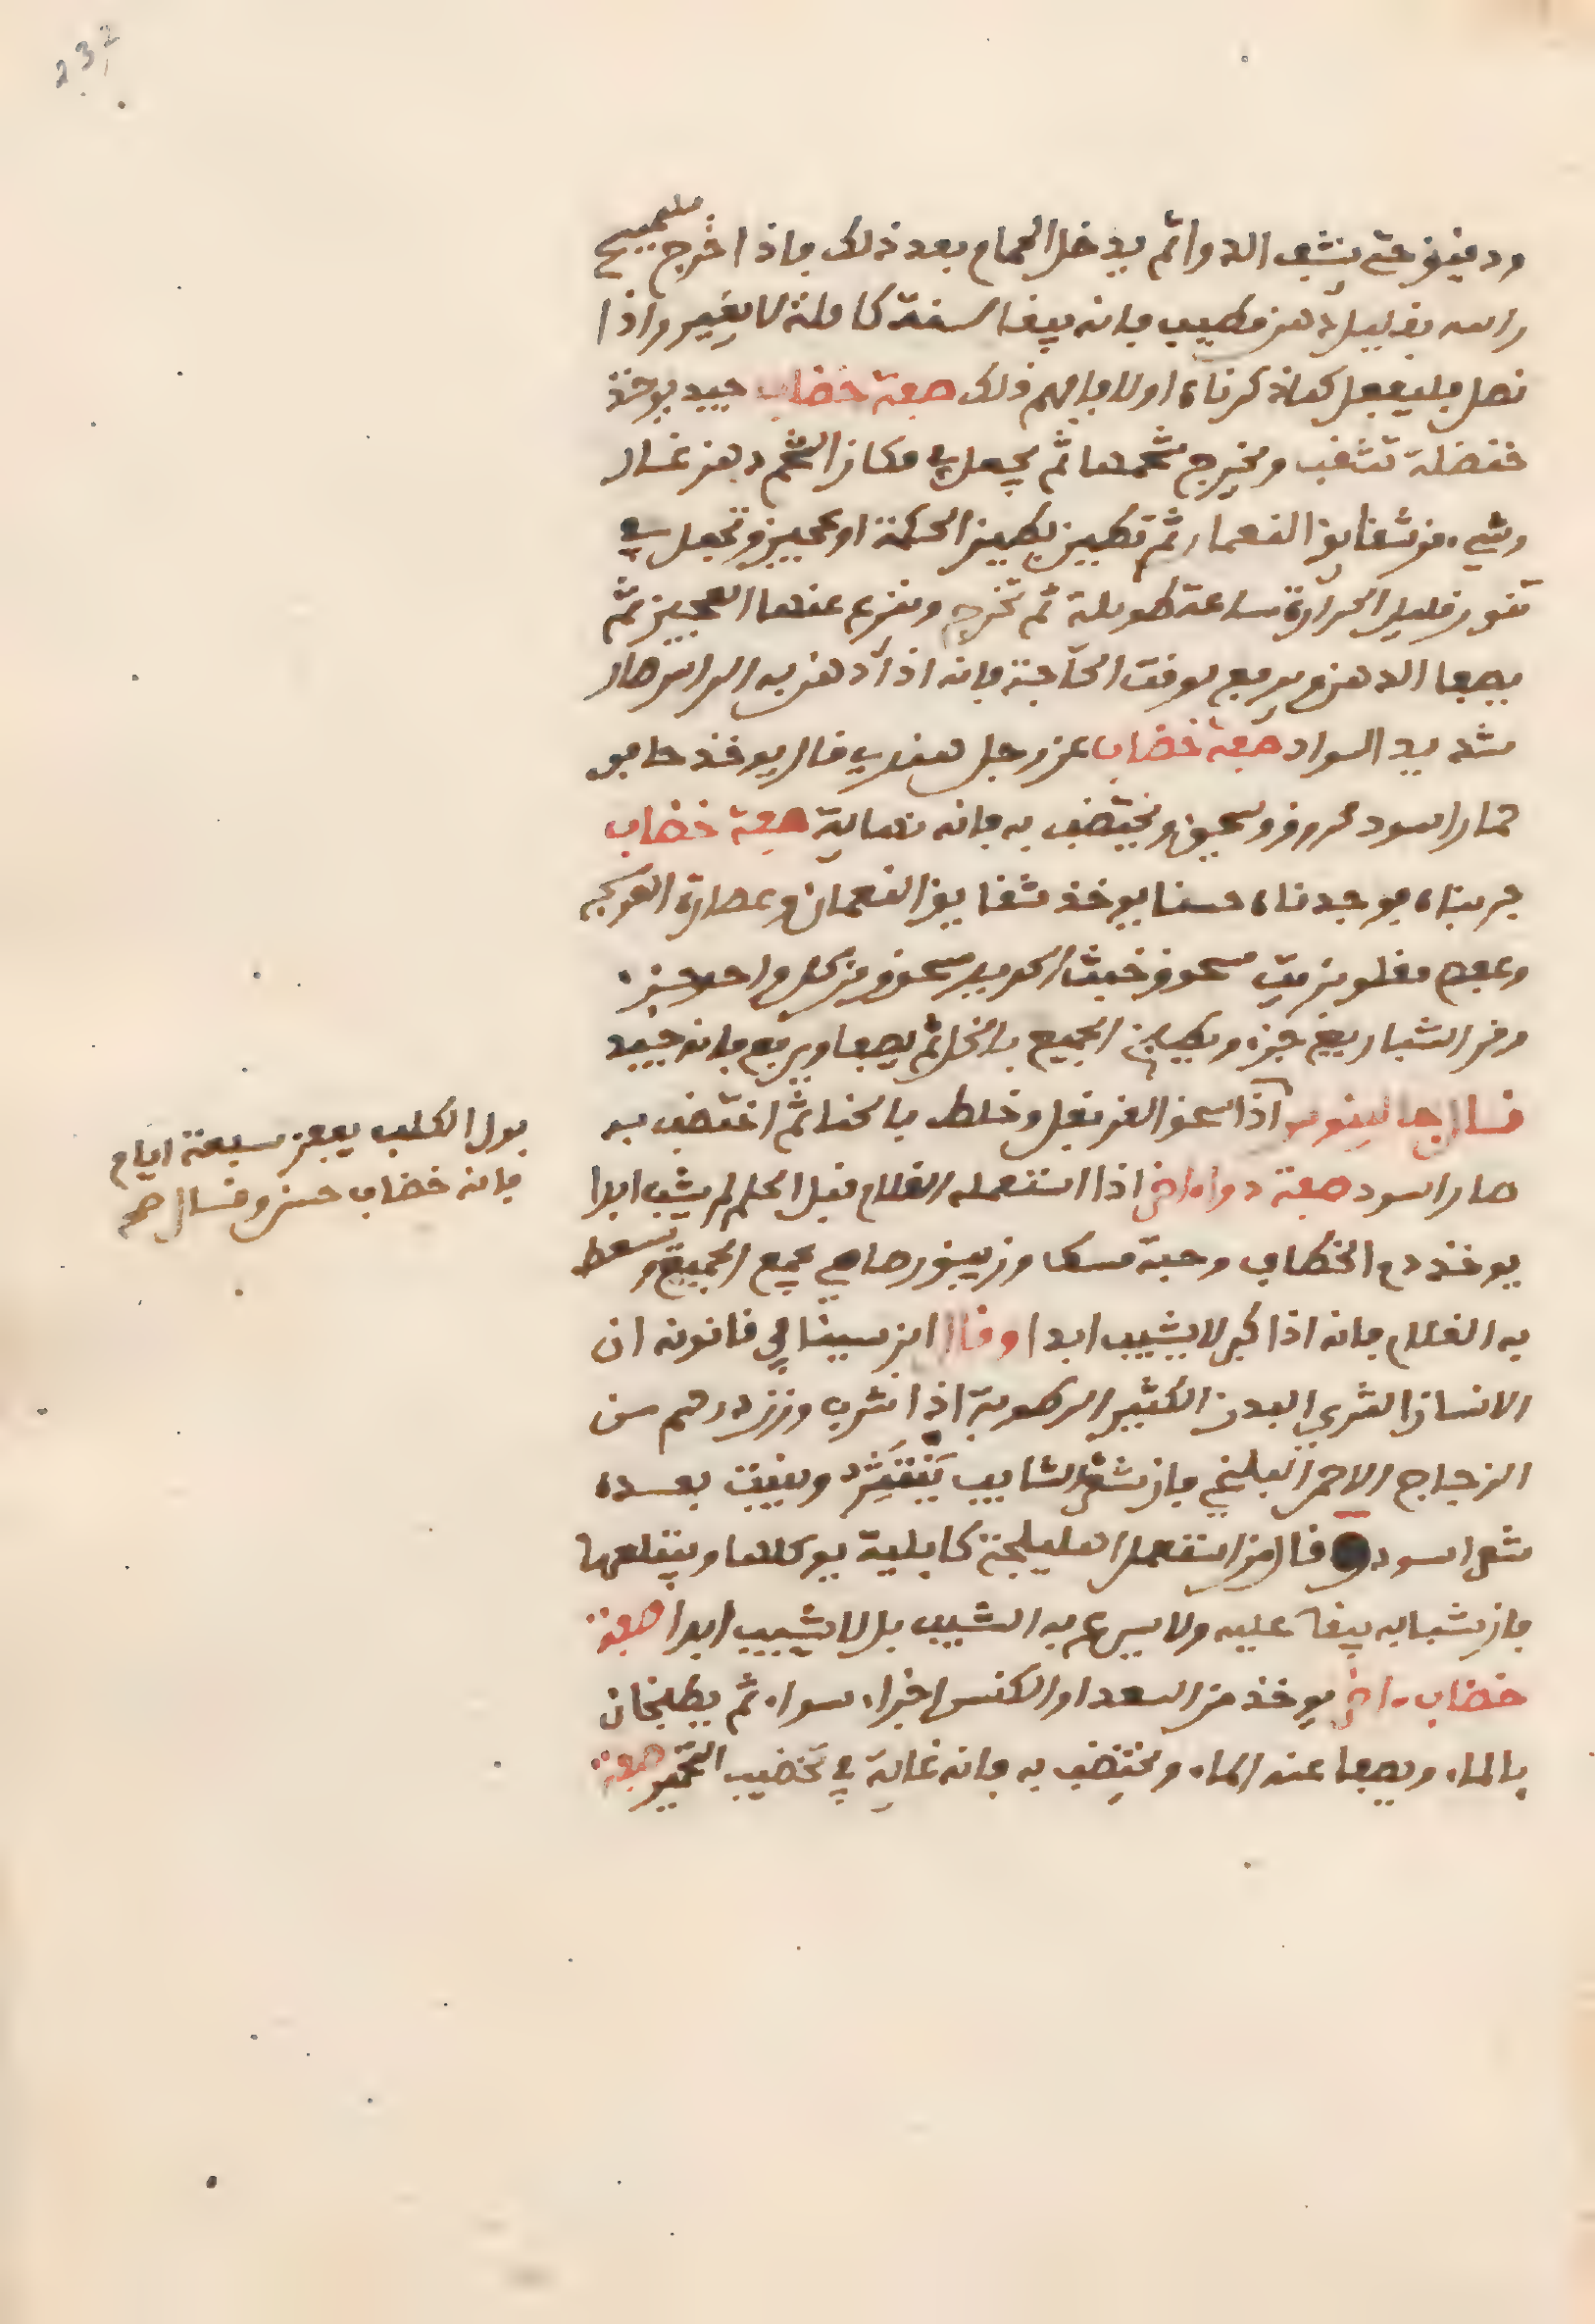 232
ودقيقز حتى ينشف الدوا ثم يدخل الحمام بعد ذلك فاذا خرج فليمسح
راسه بقليل دهن مطيب فانه يبقا سنة كاملة لا يتغير واذا
نصل فليفعل كما ذكرناه اولا فافهم ذلك صفة خضاب جيد يوخذ
حنضلة تثقب ويخرج شحمها ثم يجعل في مكان الشحم دهن غسار
وشيء من شقايق النعمان ثم تطين بطين الحكمة او عجين وتجعل في
تنور قليل الحرارة ساعة طويلة ثم تخرج وينزع عنها العجين ثم
يصفا الدهن ويرفع لوقت الحاجة فانه اذا ادهن به الراس صار
شديد السواد صفة خضاب عن رجل هندي قال يوخذ حافر
حمار اسود محروق وسحيق ويختضب به فانه نهاية صفة خضاب
جربناه فوجدناه حسنا يوخذ شقايق النعمان وعصارة العوسج
وعفص مقلو بزيت مسحوق وخبث الحديد مسحوق من كل واحد جزء
ومن الشب اربع جزء ويطبخ الجميع بالخل ثم يصفا ويرفع فانه جيد
قال جالينوس اذا سحق القرنفل وخلط بالحنا ثم اختضب به
صار اسود صفة دواء اخر اذا استعمله الغلام قبل الحلم لم يشب ابدا
يوخذ دم الخطاف وحبة مسك وزيبق رصاصي يجمع الجميع ويسعط
به الغلام فانه اذا كبر لا يشيب ابدا وقال ابن سينا في قانونه ان
الانسان الثري البدن الكثير الرطوبة اذا شرب وزن درهم من
الزجاج الاحمر البلغي فان شعر الشايب ينتثر وينبت بعده
شعر اسود وقال من استعمل اهليلجة كابلية يوكلها ويبتلعها
فان شبابه يبقا عليه ولا يسرع به الشيب بل لا يشيب ابدا صفة
خضاب اخر يوخذ من السعد او الكندس اجزاء سواء ثم يطبخان
بالماء ويصفا عنه الماء ويختضب به فانه غاية في تخضيب التحمير صفة
بول الكلب يعفن سبعة ايام
فانه خضاب حسن وقال صح